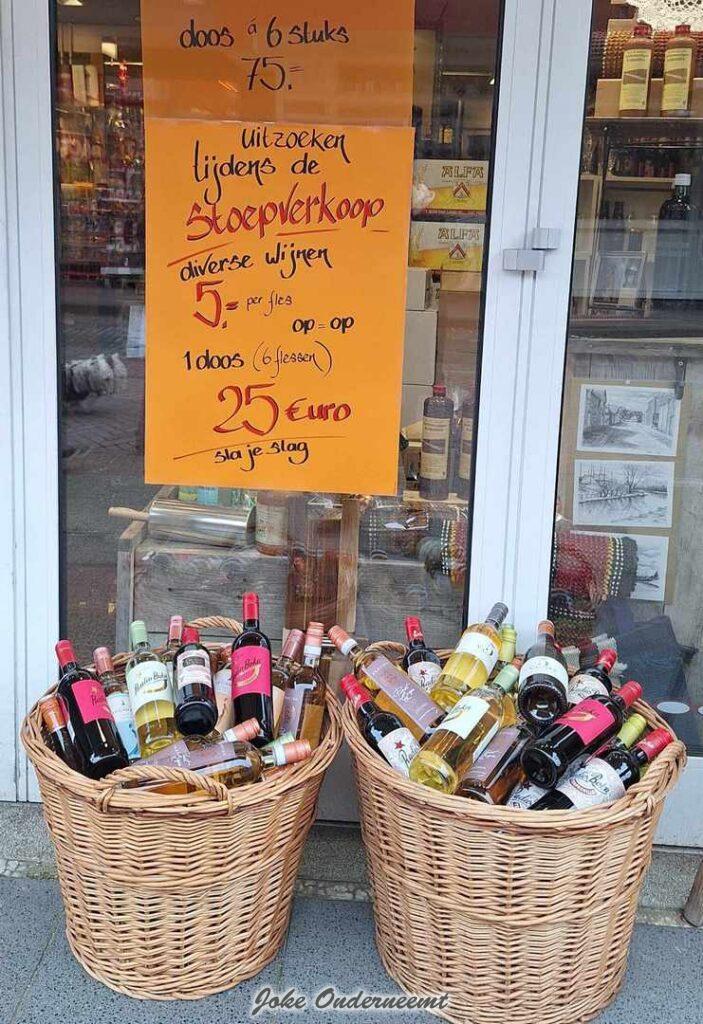 doos á 6 stuks
75.=
Uitzoeken
tijdens de
Stoepverkoop
diverse wijnen
5.= per fles
op = op
1 doos (6 flessen)
25 Euro
sla je slag
ALFA
ALFA
Joke Onderneemt